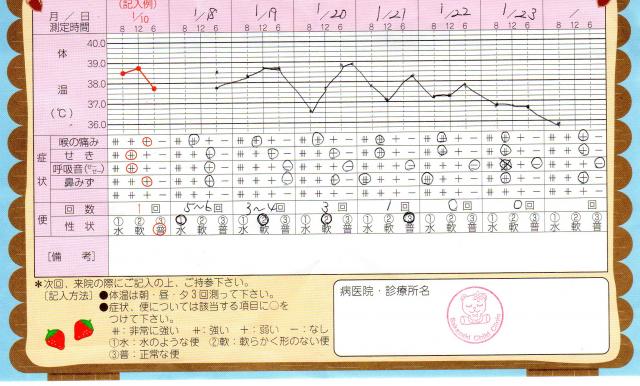 (記入例)
月/日 1/10 1/18 1/19 1/20 1/21 1/22 1/23 /
測定時間 8 12 6 8 12 6 8 12 6 8 12 6 8 12 6 8 12 6 8 12 6 8 12 6
体温(℃)
40.0
39.0
38.0
37.0
36.0
症状
喉の痛み 卌 ⧺ + −
せき
呼吸音
鼻みず
便
回数 1回 5~6回 3~4回 3回 1回 0回 0回 回
性状 ①水 ②軟 ③普
[備考]
*次回、来院の際にご記入の上、ご持参下さい。
[記入方法] ●体温は朝・昼・夕3回測って下さい。
●症状、便については該当する項目に○を
つけて下さい。
卌:非常に強い ⧺:強い +:弱い −:なし
①水:水のような便 ②軟:軟らかく形のない便
③普:正常な便
病医院・診療所名